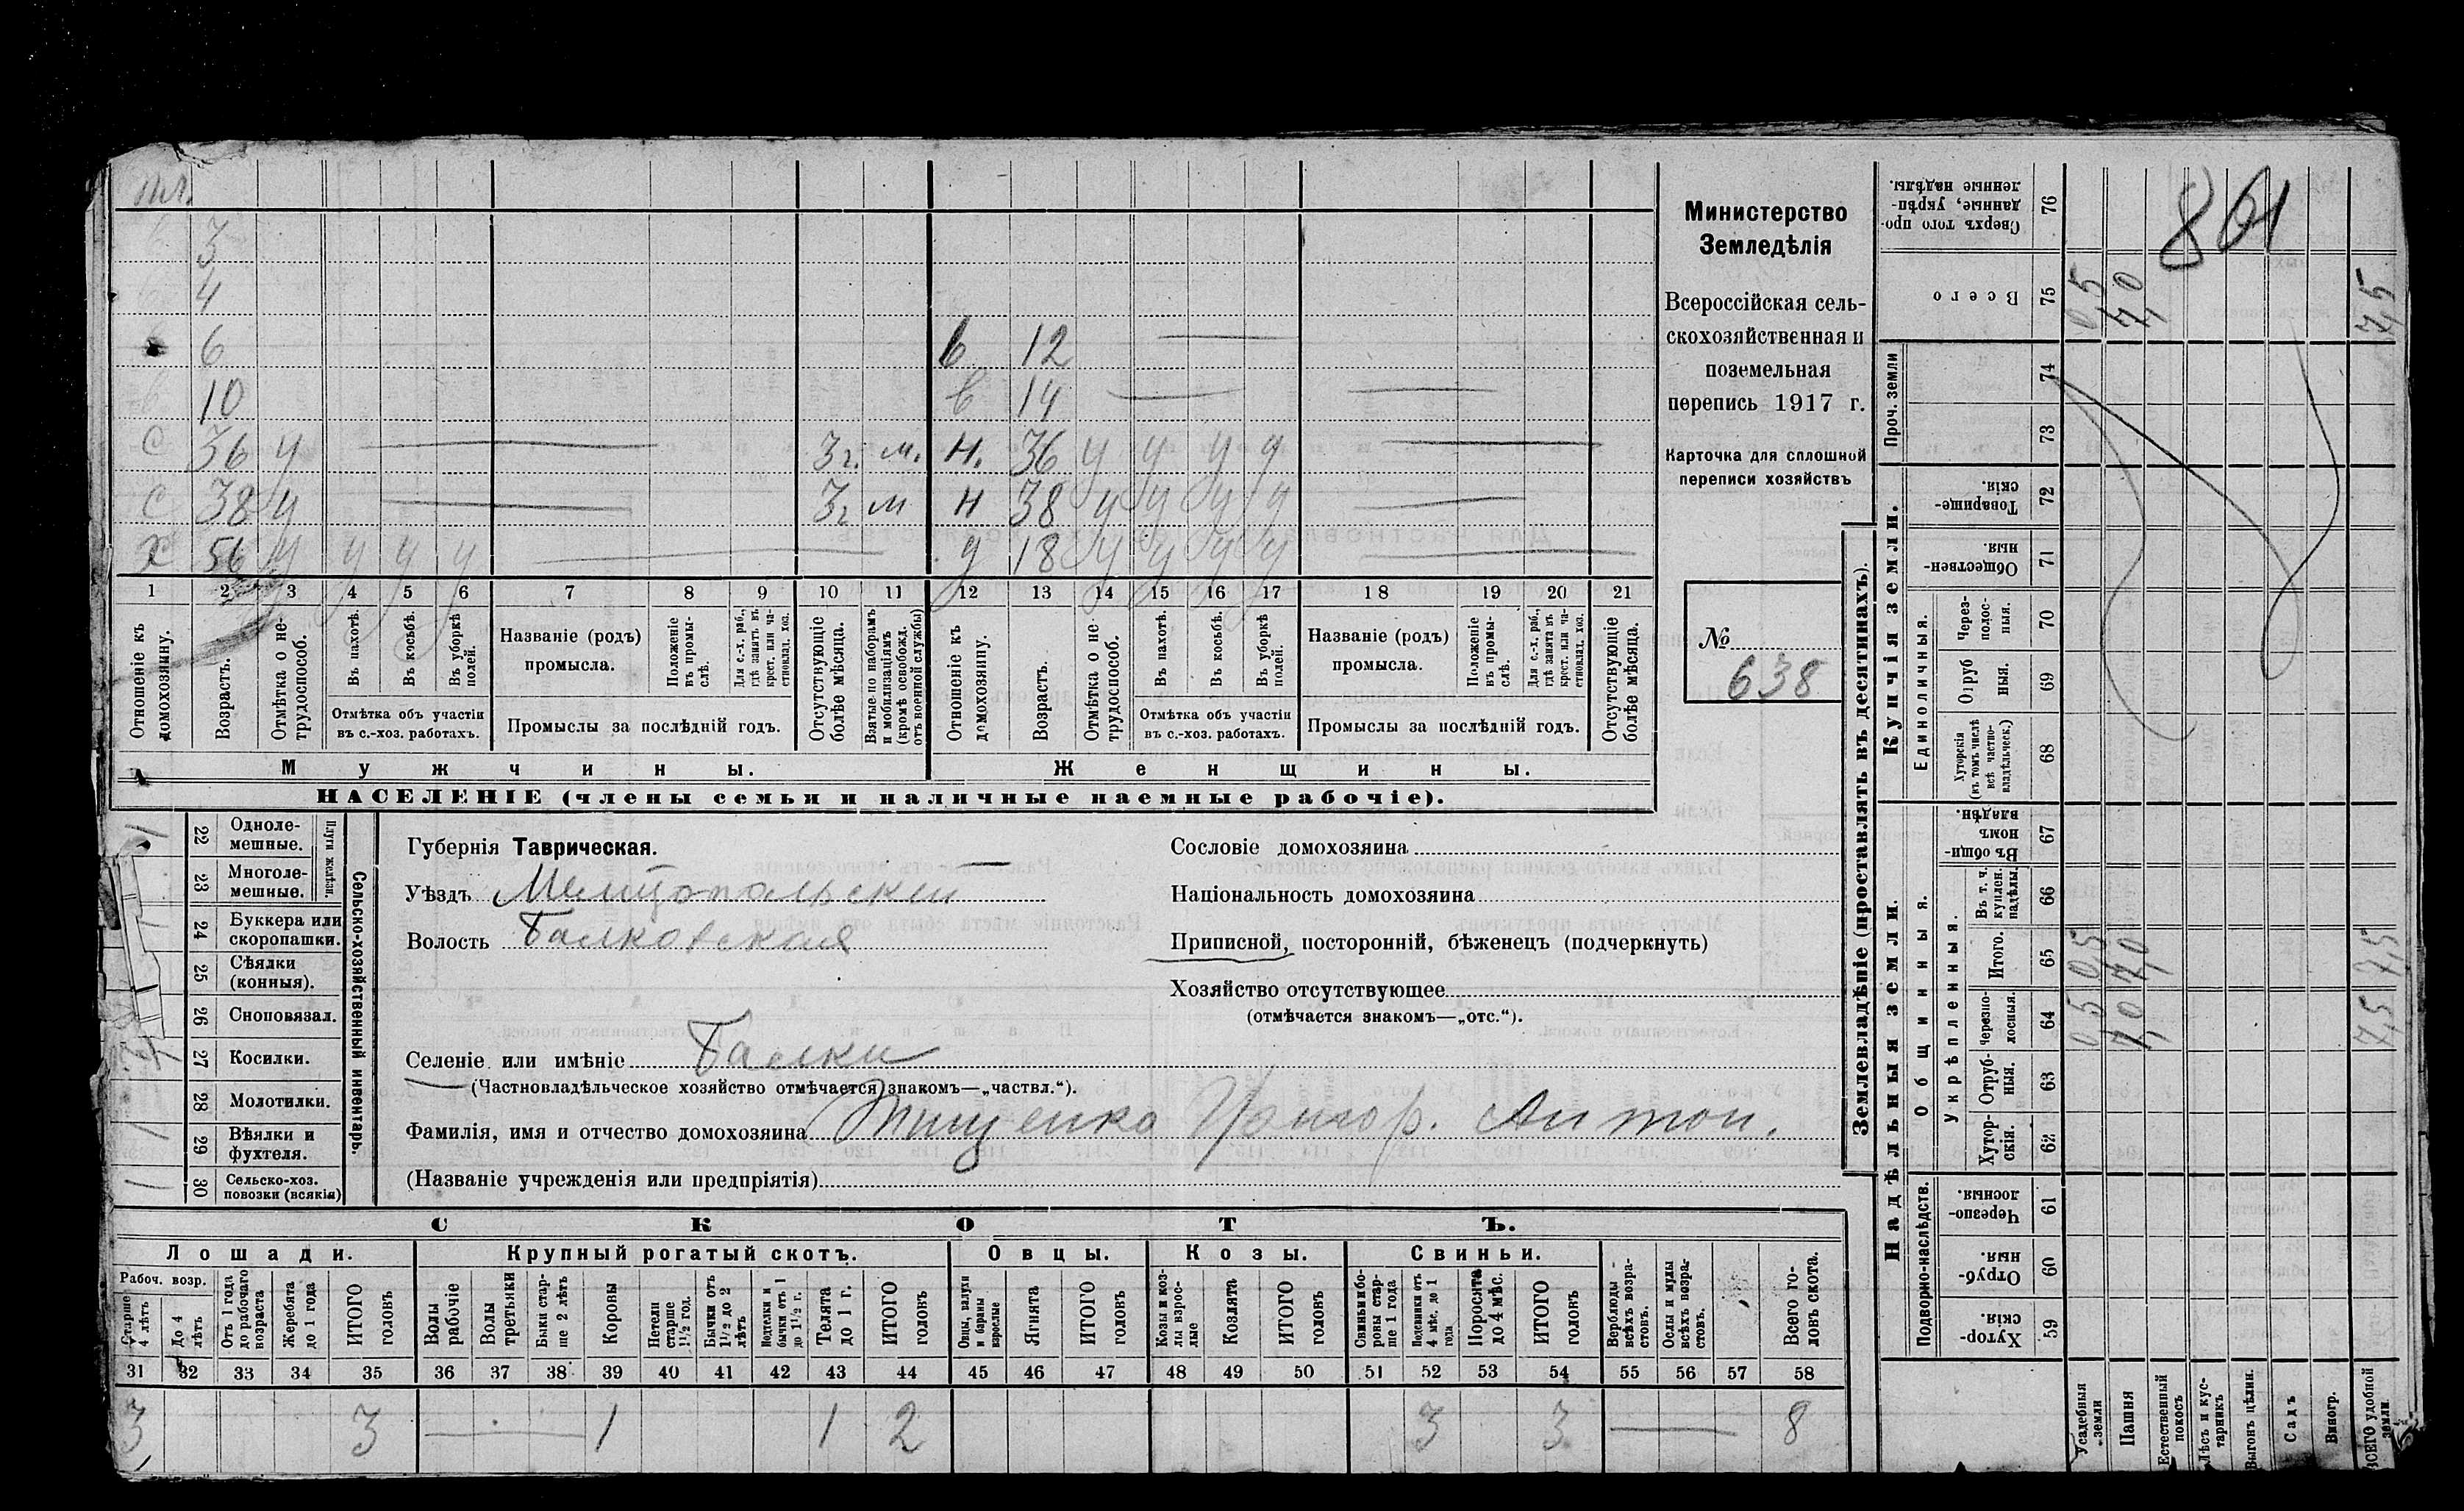 мл.
3
4
6 в 12
10 в 14
С 36 у 3 г. м. н. 36 у у у у
С 38 у 3 г м н 38 у у у у
Х 56 у у у у д 18 у у у у
1 2 3 4 5 6 7 8 9 10 11 12 13 14 15 16 17 18 19 20 21
Отношеніе къ домохозяину.
Возрастъ.
Отмѣтка о не-трудоспособ.
Въ пахотѣ.
Въ косьбѣ.
Въ уборкѣ полей.
Отмѣтка объ участіи въ с.-хоз. работахъ.
Названіе (родъ) промысла.
Положеніе въ промы-слѣ.
Для с.-х. раб., гдѣ занятъ въ крест. или ча-стновлад. хоз.
Промыслы за послѣдній годъ.
Отсутствующіе болѣе мѣсяца.
Взятые по наборамъ и мобилизаціямъ (кромѣ освобожд. отъ военной службы)
Отношеніе къ домохозяину.
Возрастъ.
Отмѣтка о не трудоспособ.
Въ пахотѣ.
Въ косьбѣ.
Въ уборкѣ полей.
Отмѣтка объ участіи въ с.-хоз. работахъ.
Названіе (родъ) промысла.
Положеніе въ промы-слѣ.
Для с.-х. раб., гдѣ занята въ крест. или ча-стновлад. хоз.
Промыслы за послѣдній годъ.
Отсутствующіе болѣе мѣсяца.
Мужчины. Женщины.
НАСЕЛЕНІЕ (члены семьи и наличные наемные рабочіе).
Министерство
Земледѣлія
Всероссійская сель-
скохозяйственная и
поземельная
перепись 1917 г.
Карточка для сплошной
переписи хозяйствъ
№
638
22 Одноле-мешные.
23 Многоле-мешные.
Плуги желѣзн.
24 Буккера или скоропашки.
25 Сѣялки (конныя).
26 Сноповязал.
27 Косилки.
28 Молотилки.
29 Вѣялки и фухтеля.
30 Сельско-хоз. повозки (всякія)
Сельско-хозяйственный инвентарь.
Губернія Таврическая.
Уѣздъ Мелитопольскій
Волость Балковская
Селеніе или имѣніе Балки
(Частновладѣльческое хозяйство отмѣчается знакомъ—„частвл.“).
Фамилія, имя и отчество домохозяина Тищенко Григор. Антон.
(Названіе учрежденія или предпріятія)
Сословіе домохозяина
Національность домохозяина
Приписной, посторонній, бѣженецъ (подчеркнуть)
Хозяйство отсутствующее
(отмѣчается знакомъ—„отс.“).
СКОТЪ.
Лошади. Крупный рогатый скотъ. Овцы. Козы. Свиньи.
Рабоч. возр.
Старше 4 лѣтъ
До 4 лѣтъ
Отъ 1 года до рабочаго возраста
Жеребята до 1 года
ИТОГО головъ
Волы рабочіе
Волы третьяки
Быки стар-ше 2 лѣтъ
Коровы
Нетели старше 1½ год.
Бычки отъ 1½ до 2 лѣтъ
Подтелки и бычки отъ 1 до 1½ г.
Телята до 1 г.
ИТОГО головъ
Овцы, валухи и бараны взрослые
Ягнята
ИТОГО головъ
Козы и коз-лы взрос-лые
Козлята
ИТОГО головъ
Свиньи бо-ровы стар-ше 1 года
Подсвинки отъ 4 мѣс. до 1 года
Поросята до 4 мѣс.
ИТОГО головъ
Верблюды всѣхъ возра-стовъ.
Ослы и мулы всѣхъ возра-стовъ.
Всего го-ловъ скота.
31 32 33 34 35 36 37 38 39 40 41 42 43 44 45 46 47 48 49 50 51 52 53 54 55 56 57 58
3 3 1 1 2 3 3 8
Землевладѣніе (проставлять въ десятинахъ).
861
Сверхъ того про-данные, укрѣп-ленные надѣлы. 76
Всего 75 0,5 7,0 7,5
Проч. земли 74
73
Купчія земли.
Товарище-скія. 72
Обществен-ныя. 71
Единоличныя.
Через-полос-ныя. 70
Отруб ныя. 69
Хуторскія (въ томъ числѣ всѣ частно-владѣльческ.) 68
Надѣльныя земли.
Общинныя.
Въ общи-номъ владѣн. 67
Укрѣпленныя.
Въ т. ч. куплен. надѣлы. 66
Итого. 65 0,5 7,0 7,5
Черезпо-лосныя. 64 0,5 7,0 7,5
Отруб-ныя. 63
Хутор-скія. 62
Подворно-наслѣдств.
Черезпо-лосныя. 61
Отруб-ныя 60
Хутор-скія. 59
Усадебныя земли
Пашня
Естественный покосъ
Лѣсъ и кус-тарникъ
Выгонъ цѣлин.
Садъ
Виногр.
ВСЕГО удобной земли.